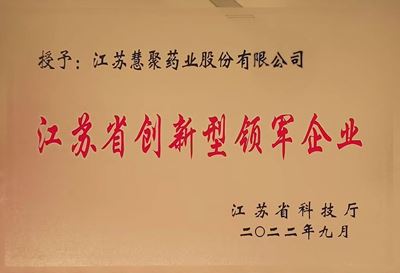 授予：江苏慧聚药业股份有限公司
江苏省创新型领军企业
江苏省科技厅
二〇二二年九月